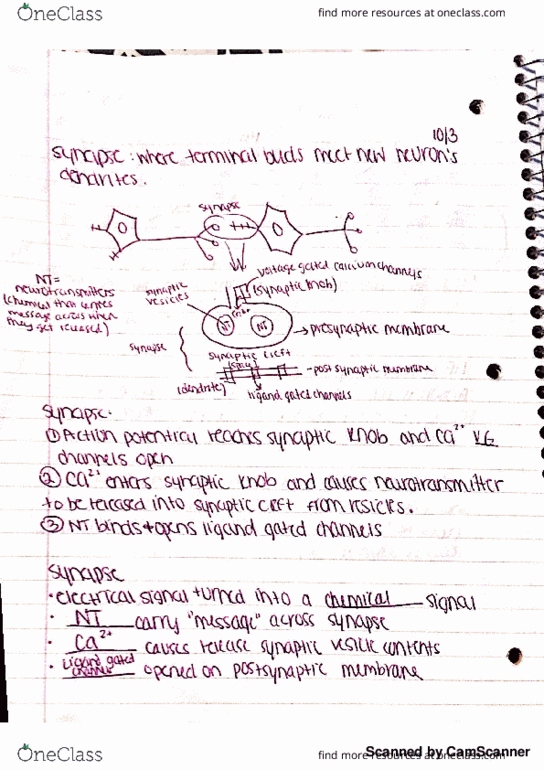 OneClass
find more resources at oneclass.com
10/3
Synapse: where terminal buds meet new neuron's
dendrites.
synapse
NT=
neurotransmitters
(chemical that carries
message across when
they get released)
synaptic
vesicles
voltage gated calcium channels
(synaptic knob)
NT
NT
presynaptic membrane
synapse
synaptic cleft
(space)
post synaptic membrane
(dendrite)
ligand gated channels
Synapse.
① Action potential reaches synaptic knob and Ca2+ VG
channels open
② Ca2+ enters synaptic knob and causes neurotransmitter
to be released into synaptic cleft from vesicles.
③ NT binds + opens ligand gated channels
Synapse
• electrical signal turned into a chemical signal
• NT carry "message" across synapse
• Ca2+ causes release synaptic vesicle contents
• Ligand gated channels opened on postsynaptic membrane
OneClass
find more resources at oneclass.com
Scanned by CamScanner